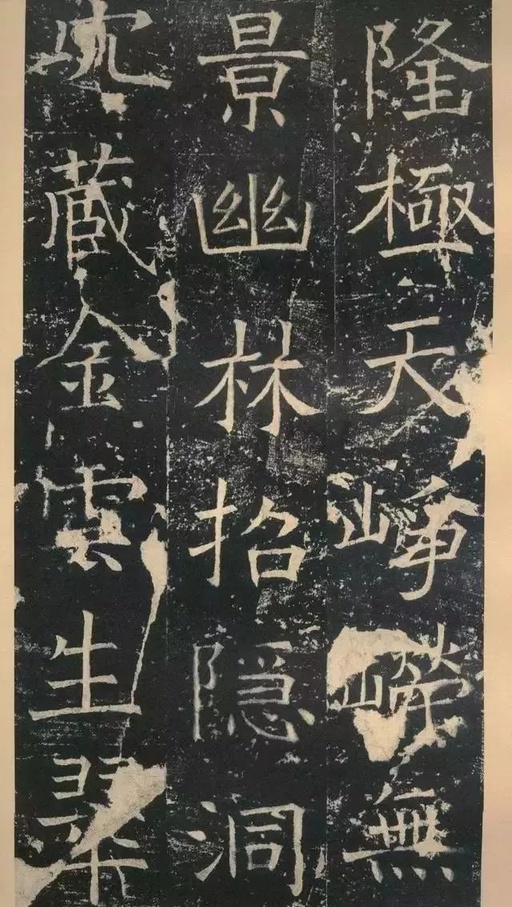 隆極天崢嶸無
景幽林招隐洞
穴藏金雲生